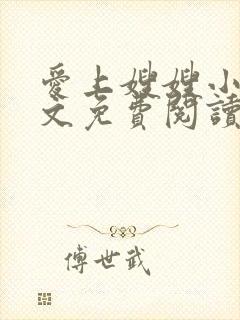 愛上嫂嫂小
文免費閱讀
傅世武